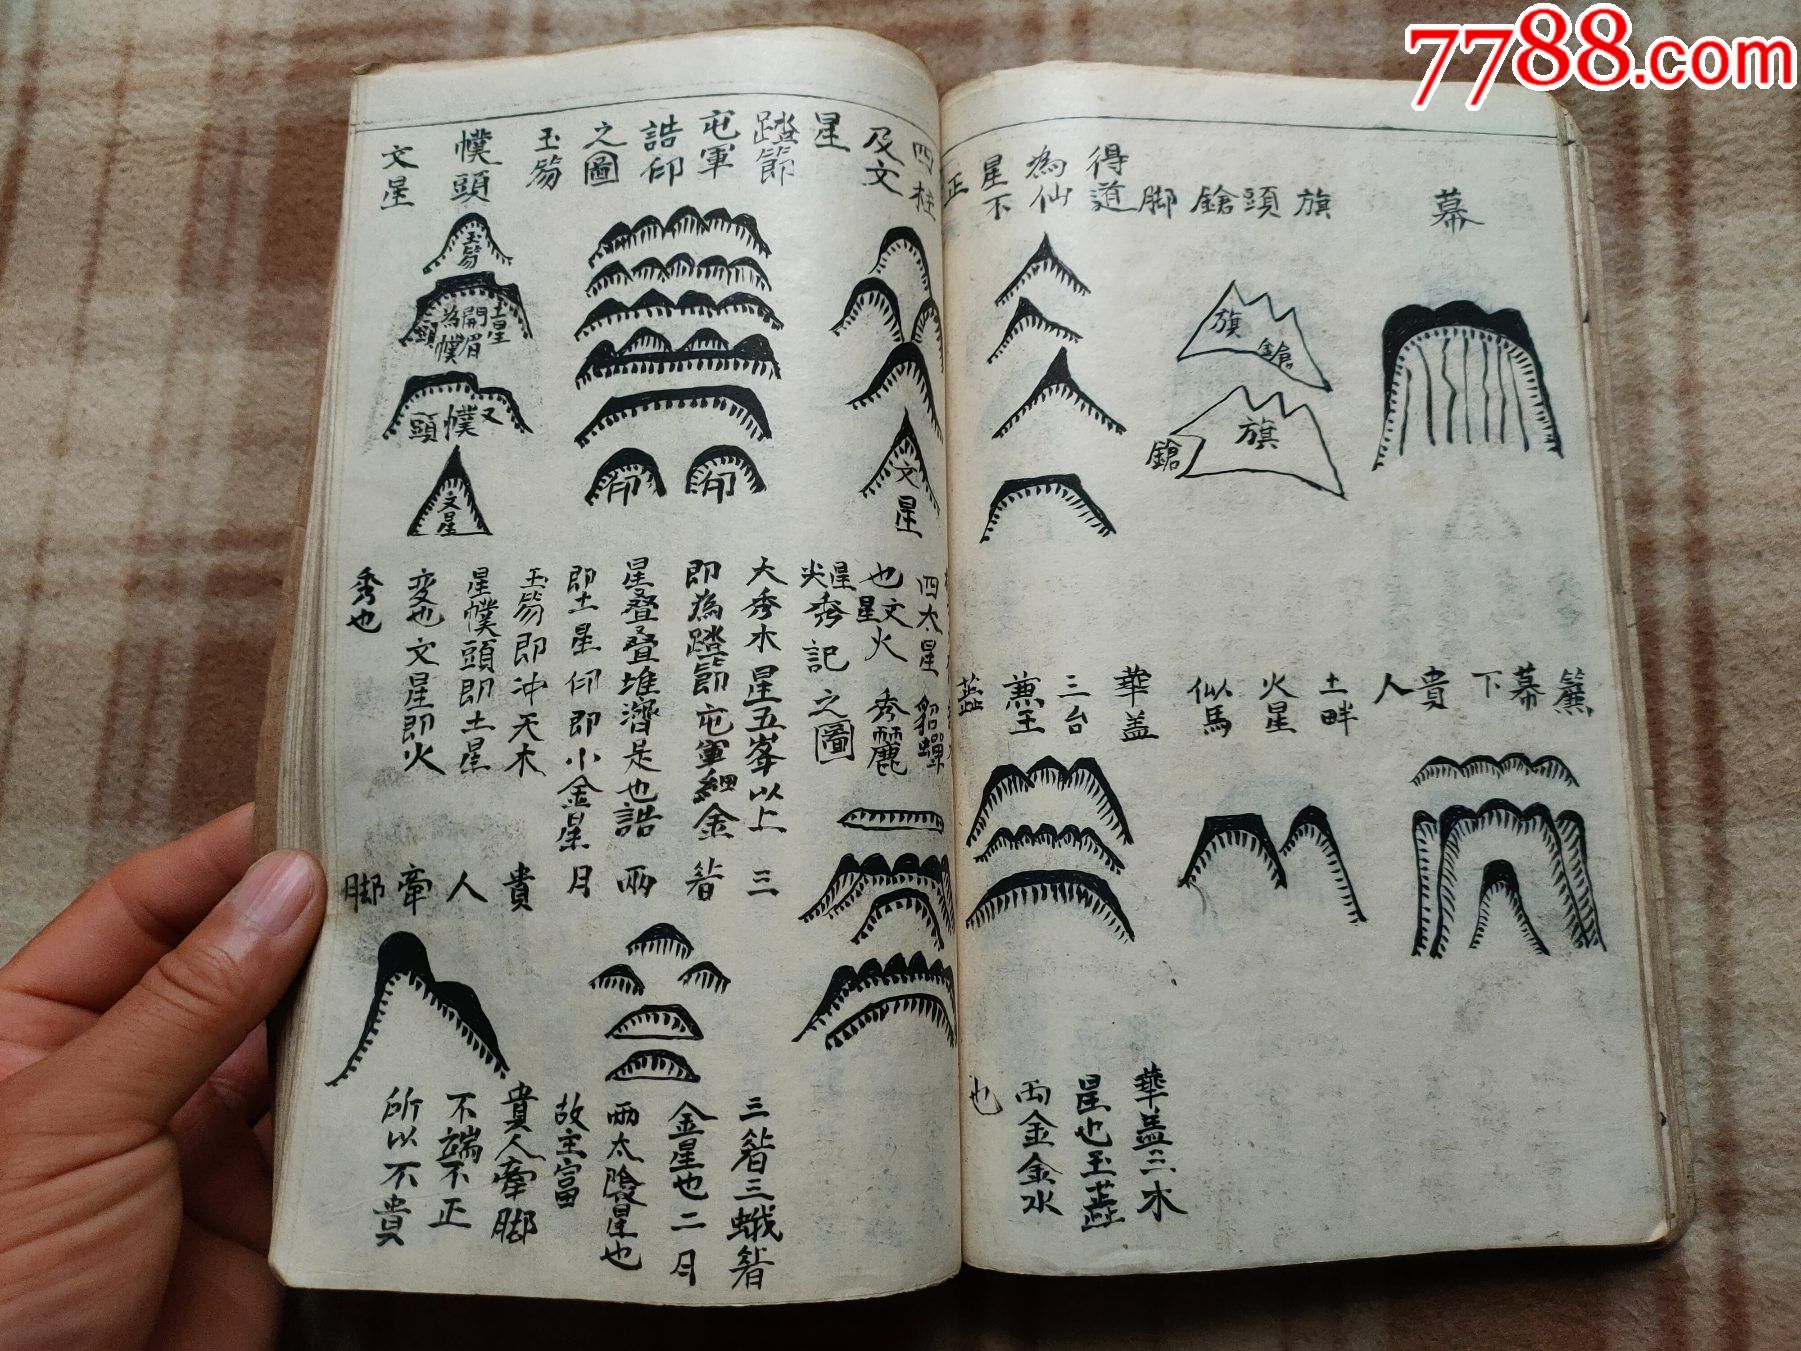 7788.com
幕
旗
頭
鎗
脚
得道
為仙
星不
正
旗
鎗
旗
鎗
簾
幕
下
貴
人
土畔
火星
似馬
華盖
三台
兼玉
華盖三木
星也玉
両金金水
也
四柱
及文
星
踏節
屯軍
誥印
之圖
玉笏
幞頭
文星
文星
印
印
玉笏
土星
開眉
為幞
頭
又
幞
頭
文星
四太星
也文火
星
星
尖秀記
之圖
貂蟬
秀麗
大秀木星五峯以上
即為踏節屯軍細金
星叠叠堆濟是也誥
即土星印即小金星
玉笏即冲天木
星幞頭即土星
变也文星即火
秀也
三
笤
兩
月
貴
人
牽
脚
三笤三蛾笤
金星也二月
兩太陰星也
故主富
貴人牽脚
不端不正
所以不貴